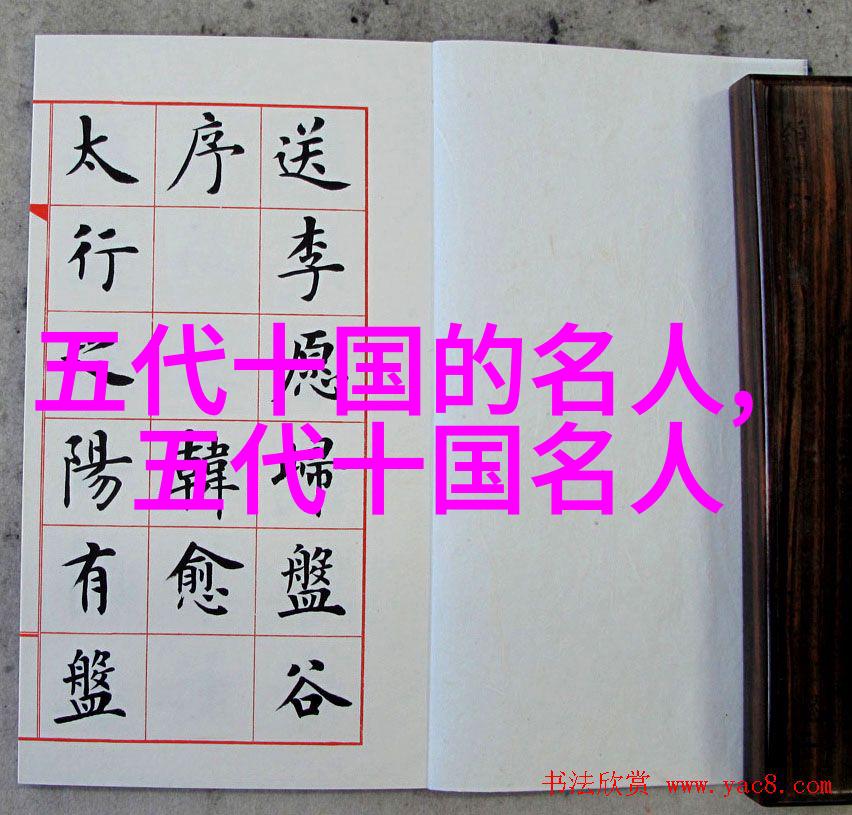 送李愿歸盤谷
序韓愈
太行之陽有盤
五代十国的名人,
五代十国名人
书法欣赏 www.yac8.com